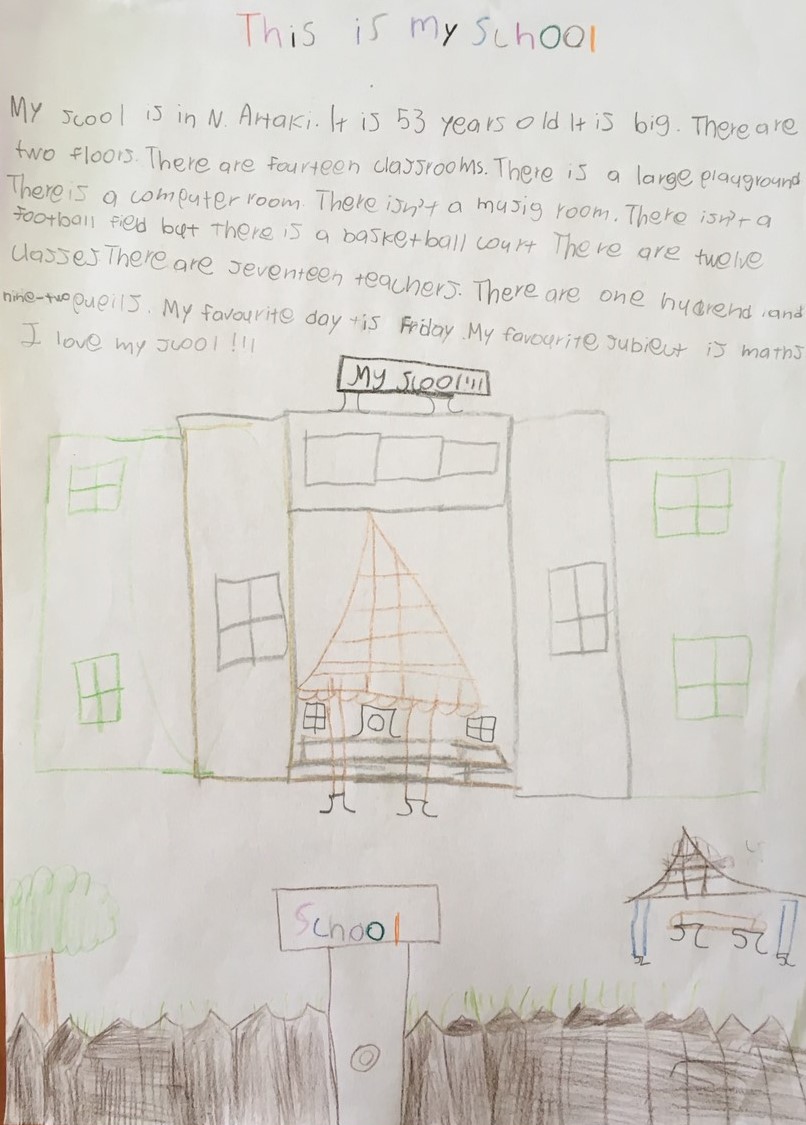 This is my School
My scool is in N. Artaki. It is 53 years old It is big. There are
two floors. There are fourteen classrooms. There is a large playground
There is a computer room. There isn't a musig room. There isn't a
football field but there is a basketball court There are twelve
classes There are seventeen teachers. There are one hudrend and
nine-two pueils. My favourite day is Friday. My favourite subject is maths
I love my scool !!!
My Scool!!!
School